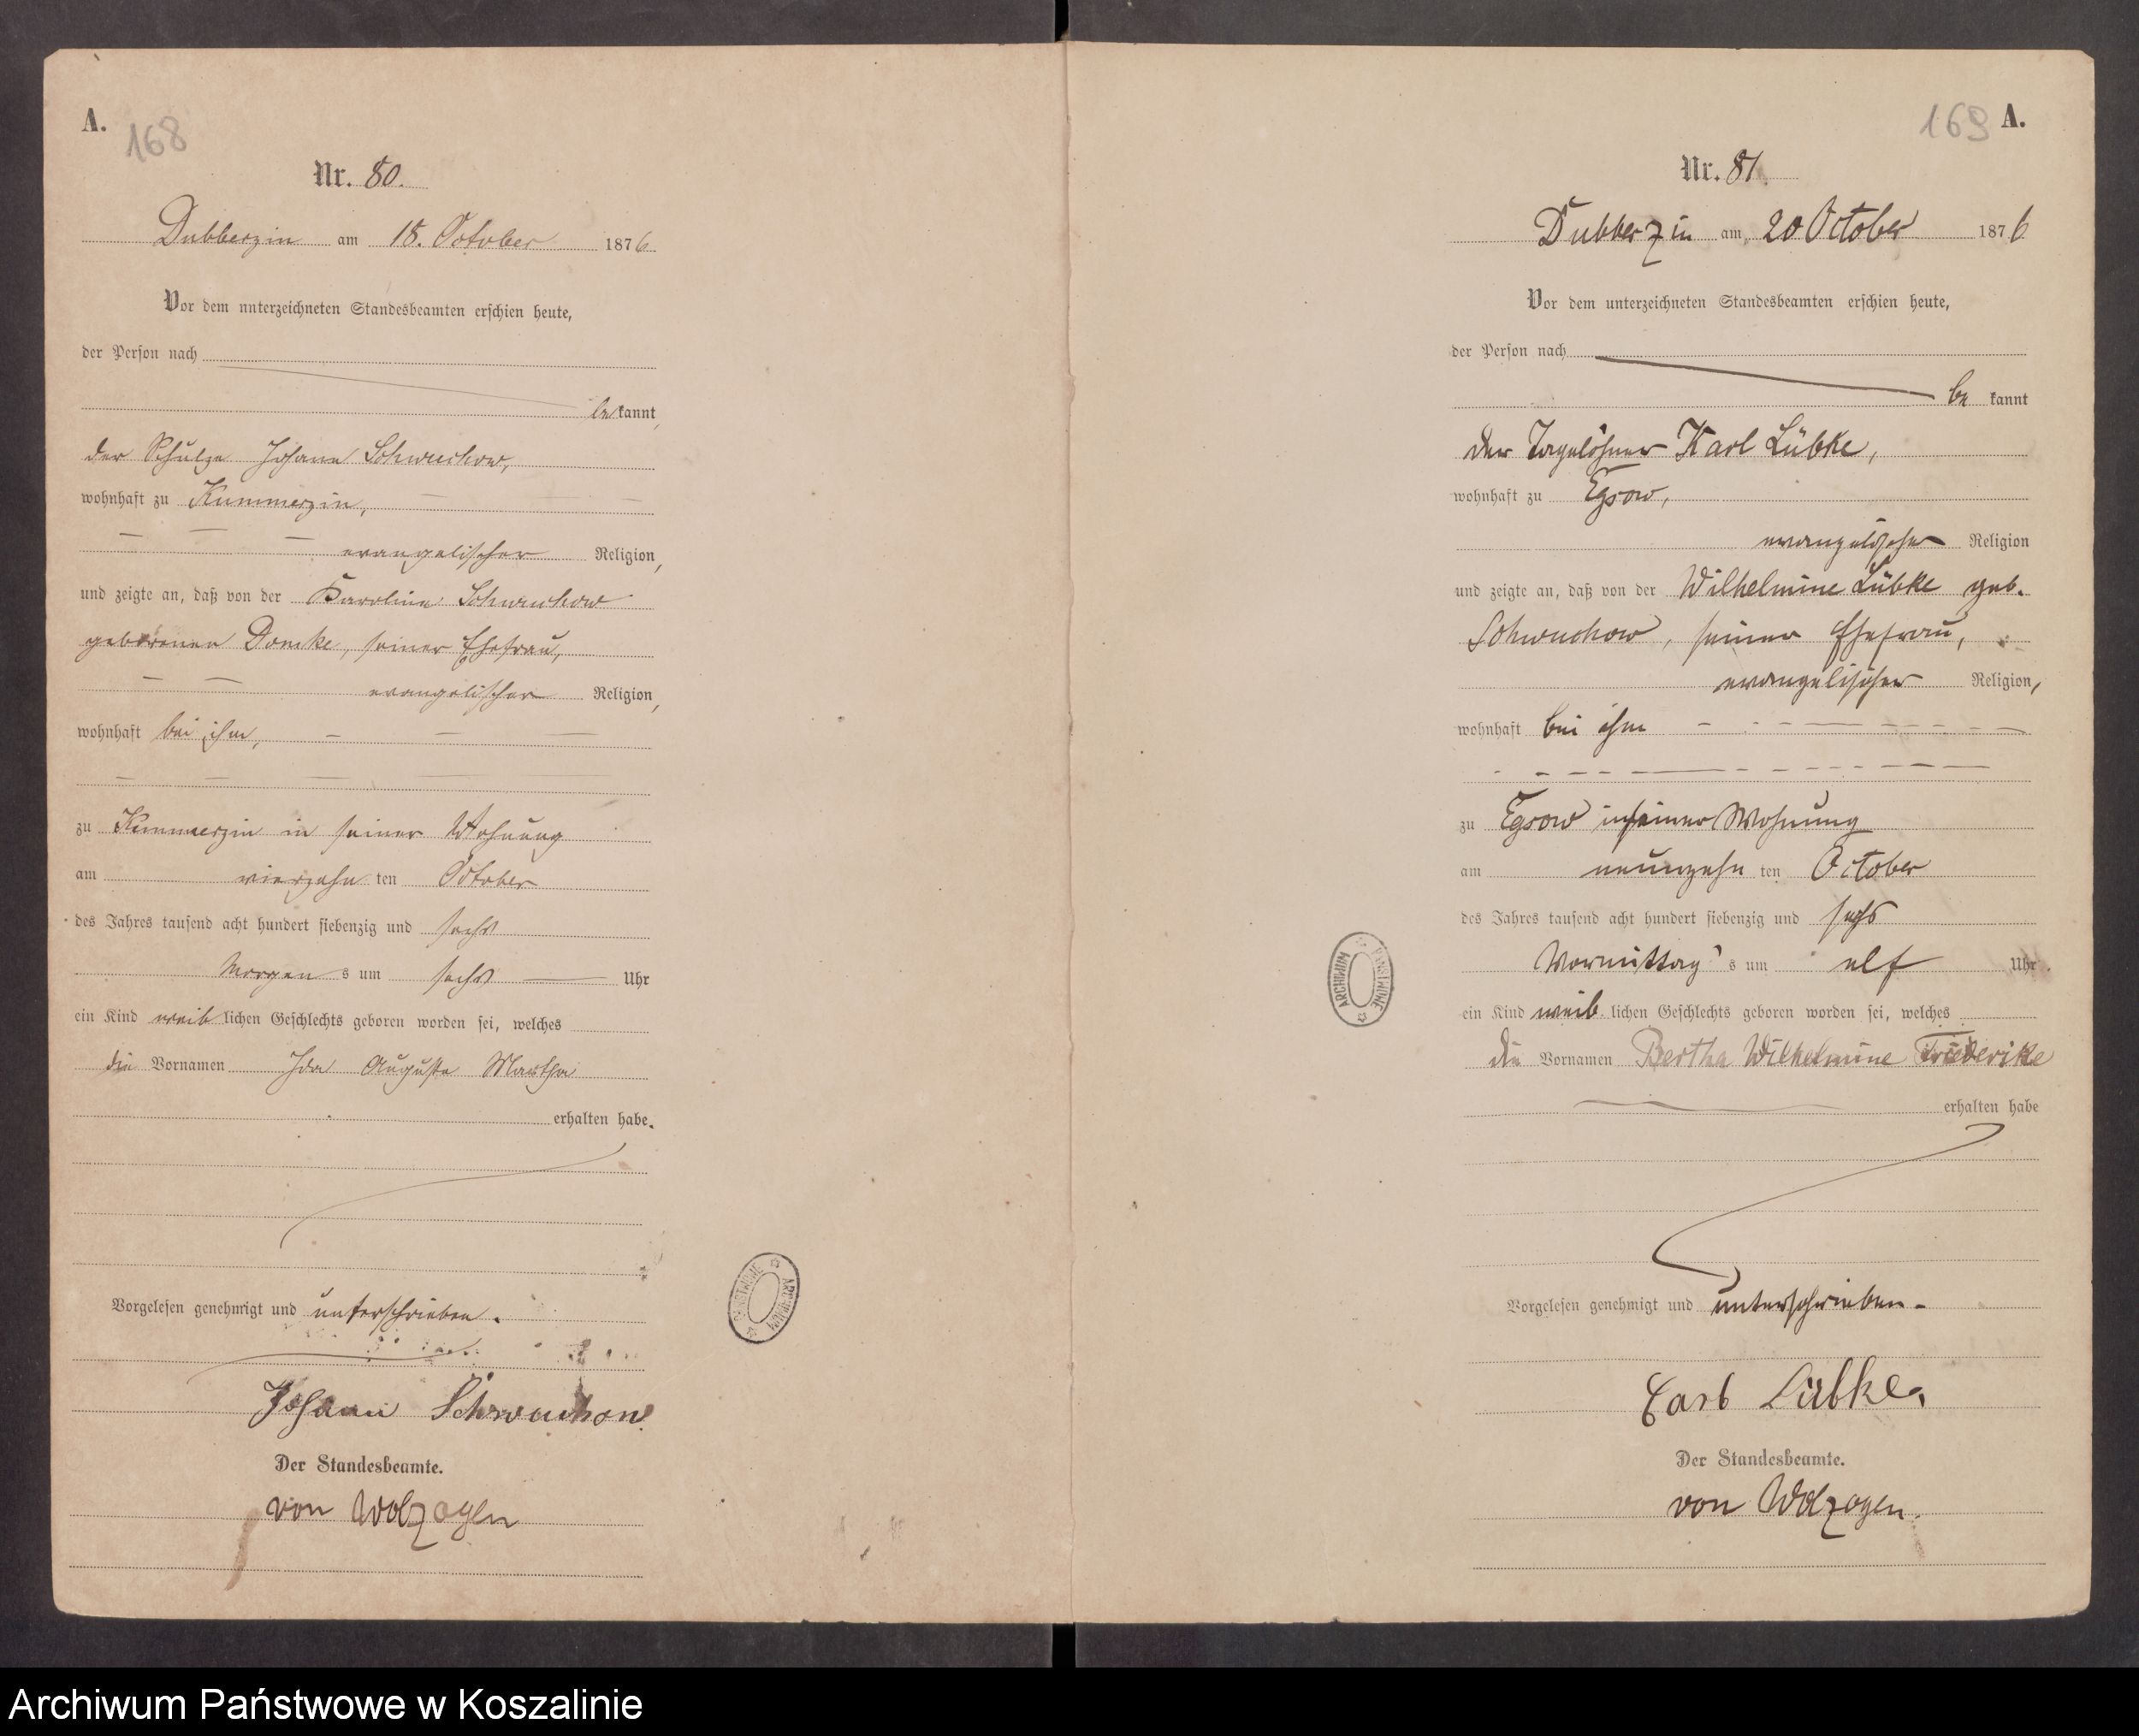 A.
168
Nr. 80.
Dubberzin am 18. October 1876
Vor dem unterzeichneten Standesbeamten erschien heute,
der Person nach
bekannt,
der Schulze Johann Schwuchow,
wohnhaft zu Kummerzin,
evangelischer Religion,
und zeigte an, daß von der Karoline Schwuchow
geborenen Domke, seiner Ehefrau,
evangelischer Religion,
wohnhaft bei ihm,
zu Kummerzin in seiner Wohnung
am vierzehn ten October
des Jahres tausend acht hundert siebenzig und sechs
Morgen s um sechs Uhr
ein Kind weib lichen Geschlechts geboren worden sei, welches
die Vornamen Ida Auguste Martha
erhalten habe.
Vorgelesen genehmigt und unterschrieben.
Johann Schwuchow
Der Standesbeamte.
von Wolzogen
ARCHIWUM PAŃSTWOWE
169 A.
Nr. 81.
Dubberzin am 20 October 1876
Vor dem unterzeichneten Standesbeamten erschien heute,
der Person nach
be kannt
der Tagelöhner Karl Lübke,
wohnhaft zu Egsow,
evangelischer Religion
und zeigte an, daß von der Wilhelmine Lübke geb.
Schwuchow, seiner Ehefrau,
evangelischer Religion,
wohnhaft bei ihm
zu Egsow in seiner Wohnung
am neunzehn ten October
des Jahres tausend acht hundert siebenzig und sechs
Vormittag s um elf Uhr
ein Kind weib lichen Geschlechts geboren worden sei, welches
die Vornamen Bertha Wilhelmine Friederike
erhalten habe
Vorgelesen genehmigt und unterschrieben.
Carl Lübke.
Der Standesbeamte.
von Wolzogen.
ARCHIWUM PAŃSTWOWE
Archiwum Państwowe w Koszalinie